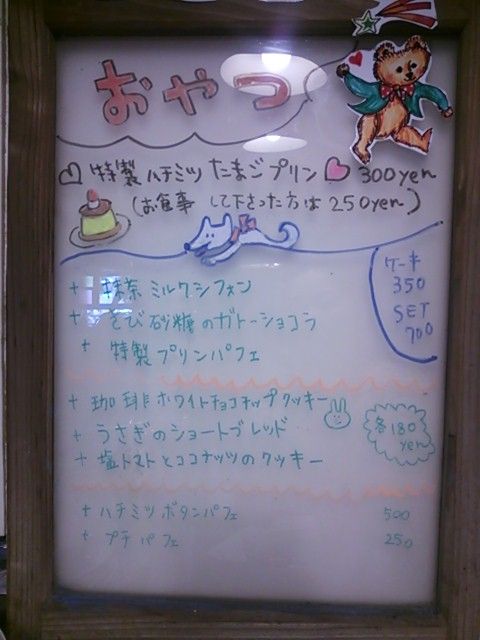 おやつ
特製ハチミツたまごプリン 300yen
(お食事して下さった方は250yen)
ケーキ
350
SET
700
+ 抹茶ミルクシフォン
+ きび砂糖のガトーショコラ
+ 特製プリンパフェ
+ 珈琲ホワイトチョコチップクッキー
+ うさぎのショートブレッド
+ 塩トマトとココナッツのクッキー
各180
yen
+ ハチミツボタンパフェ 500
+ プチパフェ 250